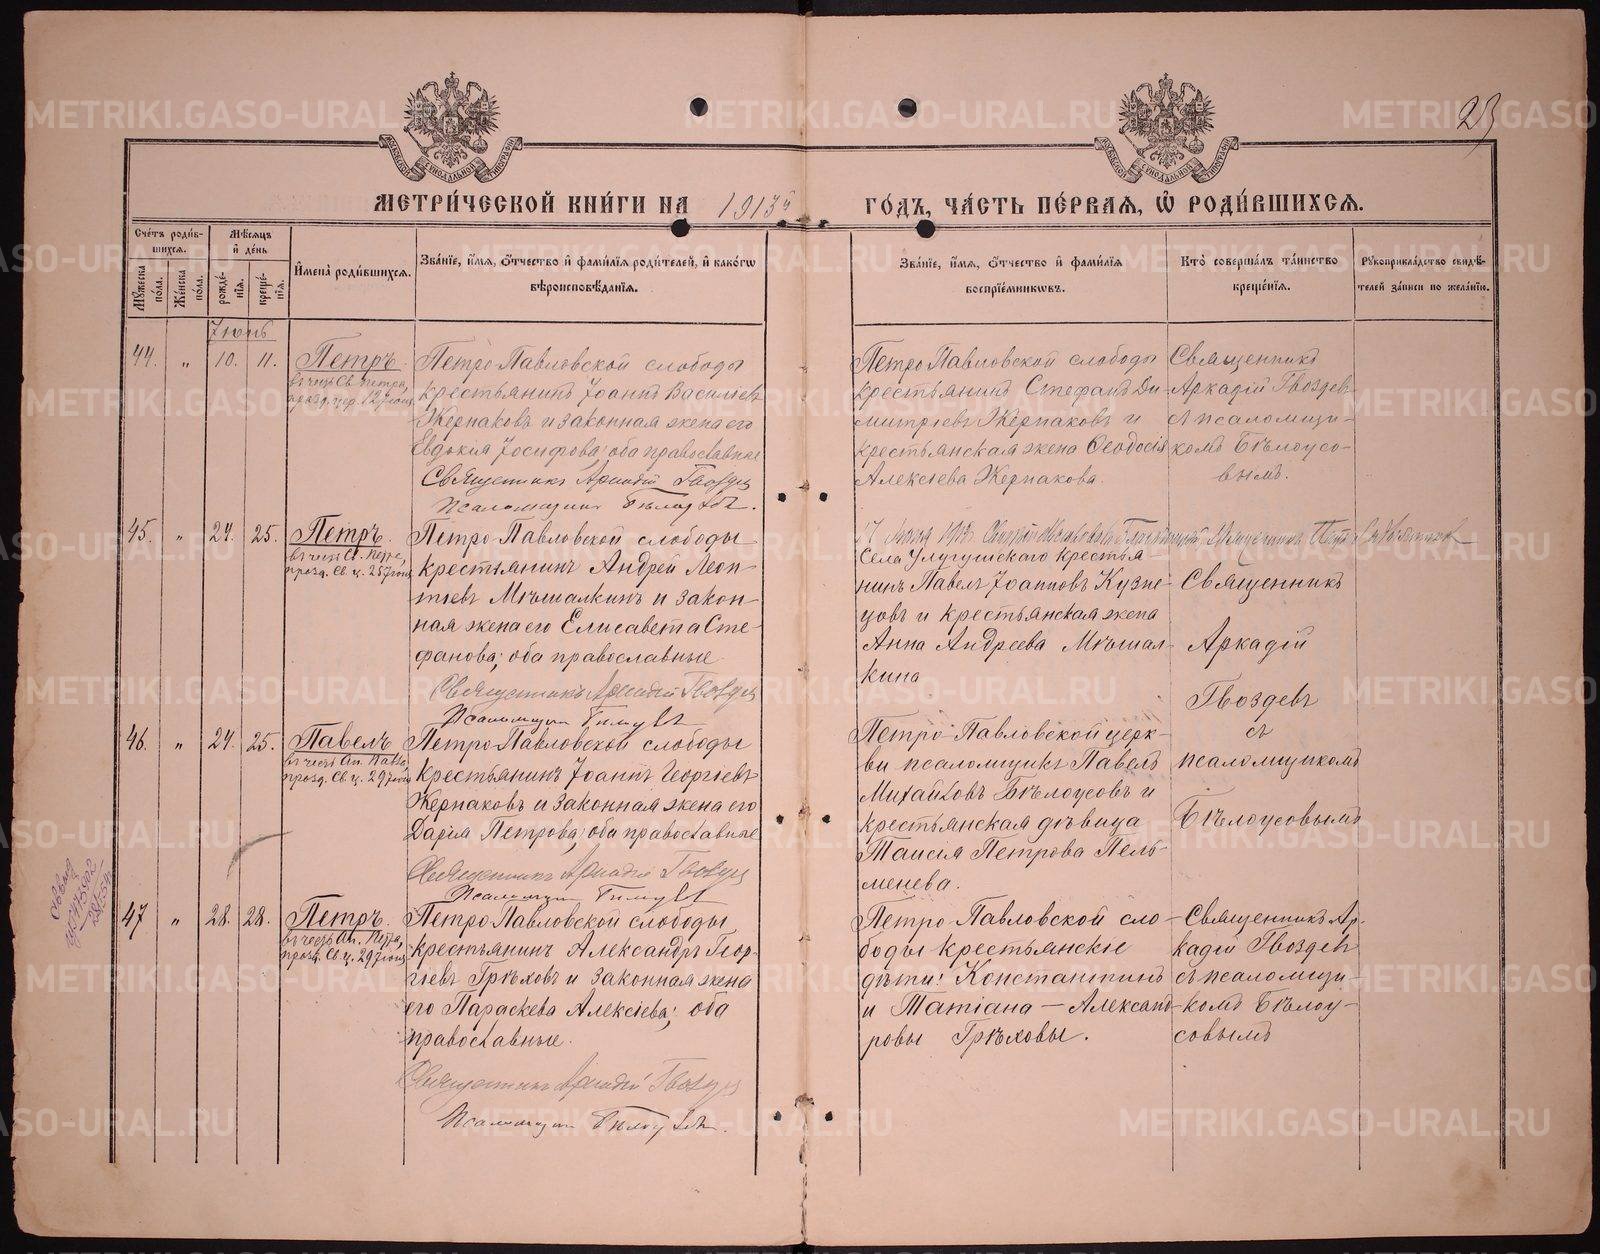 23
МЕТРИ́ЧЕСКОЙ КНИ́ГИ НА 1913й ГО́ДЪ, ЧА́СТЬ ПЕ́РВАЯ, Ѽ РОДИ́ВШИХСЯ.
Сче́тъ роди́вшихся.
Мѣ́сяцъ и҆ де́нь
Мꙋ́жеска по́ла.
Же́нска по́ла.
рожде́нїя.
креще́нїя.
И҆мена̀ роди́вшихся.
Зва́нїе, и҆́мя, ѻ҆́тчество и҆ фами́лїя роди́телей, и҆ како́гѡ вѣроисповѣ́данїя.
Зва́нїе, и҆́мя, ѻ҆́тчество и҆ фами́лїя воспрїе́мникѡвъ.
Кто̀ соверша́лъ та́инство креще́нїя.
Рꙋкоприкла́дство свидѣ́телей за́писи по жела́нїю.
Іюнь
44. „ 10. 11. Петръ
въ честь Св. Петра,
празд. цер. 12 іюня
Петро-Павловской слободы
крестьянинъ Іоаннъ Васильевъ
Жернаковъ и законная жена его
Евдокія Іосифова; оба православные
Священникъ Аркадій Гвоздевъ
Псаломщикъ Бѣлоусовъ.
Петро-Павловской слободы
крестьянинъ Стефанъ Ди-
митріевъ Жернаковъ и
крестьянская жена Ѳеодосія
Алексіева Жернакова.
Священникъ
Аркадій Гвоздевъ
съ псаломщи-
комъ Бѣлоусо-
вымъ.
45. „ 24. 25. Петръ.
въ честь Ап. Петра,
празд. Св. ц. 29 іюня
Петро-Павловской слободы
крестьянинъ Андрей Леон-
тьевъ Мѣшалкинъ и закон-
ная жена его Елисавета Сте-
фанова; оба православные
Священникъ Аркадій Гвоздевъ
Псаломщикъ Бѣлоусовъ
Села Улугушскаго крестья-
нинъ Павелъ Іоанновъ Кузне-
цовъ и крестьянская жена
Анна Андреева Мѣшал-
кина
Священникъ
Аркадій
Гвоздевъ
съ
псаломщикомъ
Бѣлоусовымъ
46. „ 24. 25. Павелъ
въ честь Ап. Павла,
празд. Св. ц. 29 іюня
Петро-Павловской слободы
крестьянинъ Іоаннъ Георгіевъ
Жернаковъ и законная жена его
Дарія Петрова; оба православные
Священникъ Аркадій Гвоздевъ
Псаломщикъ Бѣлоусовъ
Петро-Павловской церк-
ви псаломщикъ Павелъ
Михаиловъ Бѣлоусовъ и
крестьянская дѣвица
Таисія Петрова Пель-
менева.
47 „ 28. 28. Петръ.
въ честь Ап. Петра,
празд. Св. ц. 29 іюня
Петро-Павловской слободы
крестьянинъ Александръ Геор-
гіевъ Грѣховъ и законная жена
его Параскева Алексіева; оба
православные.
Священникъ Аркадій Гвоздевъ
Псаломщикъ Бѣлоусовъ.
Петро-Павловской сло-
боды крестьянскіе
дѣти: Константинъ
и Татіана — Александ-
ровы Грѣховы.
Священникъ Ар-
кадій Гвоздевъ
съ псаломщи-
комъ Бѣлоу-
совымъ
METRIKI.GASO-URAL.RU